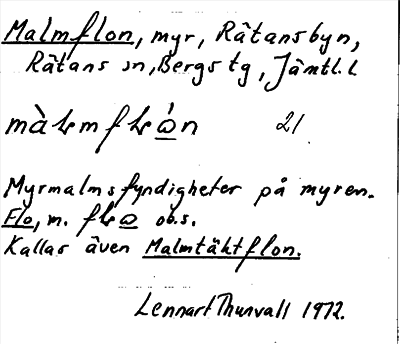 Malmflon, myr, Rätansbyn,
Rätans sn, Bergs tg, Jämtl. l
21
Myrmalmsfyndigheter på myren.
Flo, m. ob.s.
Kallas även Malmtäktflon.
Lennart Thunvall 1972.